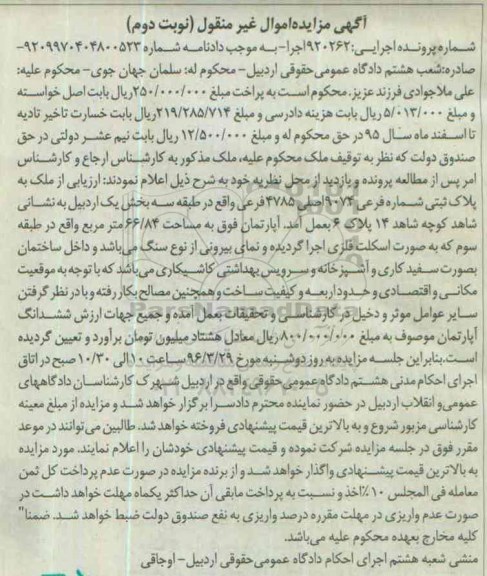 آگهی مزایده اموال غیر منقول (نوبت دوم)
شماره پرونده اجرایی: ۹۲۰۲۶۲اجرا- به موجب دادنامه شماره ۹۲۰۹۹۷۰۴۰۴۸۰۰۵۲۳-
صادره:شعب هشتم دادگاه عمومی حقوقی اردبیل- محکوم له: سلمان جهان جوی- محکوم علیه:
علی ملاجوادی فرزند عزیز. محکوم است به پراخت مبلغ ۲۵۰/۰۰۰/۰۰۰ریال بابت اصل خواسته
و مبلغ ۵/۰۱۳/۰۰۰ ریال بابت هزینه دادرسی و مبلغ ۲۱۹/۲۸۵/۷۱۴ریال بابت خسارت تاخیر تادیه
تا اسفند ماه سال ۹۵ در حق محکوم له و مبلغ ۱۲/۵۰۰/۰۰۰ ریال بابت نیم عشر دولتی در حق
صندوق دولت که نظر به توقیف ملک محکوم علیه، ملک مذکور به کارشناس ارجاع و کارشناس
امر پس از مطالعه پرونده و بازدید از محل نظریه خود به شرح ذیل اعلام نمودند: ارزیابی از ملک به
پلاک ثبتی شماره فرعی ۹۰۷۴اصلی ۴۷۸۵فرعی واقع در طبقه سه بخش یک اردبیل به نشانی
شاهد کوچه شاهد ۱۴ پلاک ۶ بعمل آمد. آپارتمان فوق به مساحت ۶۶/۸۴متر مربع واقع در طبقه
سوم که به صورت اسکلت فلزی اجرا گردیده و نمای بیرونی از نوع سنگ می‌باشد و داخل ساختمان
بصورت سفید کاری و آشپزخانه و سرویس بهداشتی کاشیکاری می‌باشد که با توجه به موقعیت
مکانی و اقتصادی و حدود اربعه و کیفیت ساخت و همچنین مصالح بکار رفته و با در نظر گرفتن
سایر عوامل موثر و دخیل در کارشناسی و تحقیقات بعمل آمده و جمیع جهات ارزش ششدانگ
آپارتمان موصوف به مبلغ ۸۰۰/۰۰۰/۰۰۰ریال معادل هشتاد میلیون تومان برآورد و تعیین گردیده
است.بنابراین جلسه مزایده به روز دوشنبه مورخ ۹۶/۳/۲۹ساعت ۱۰ الی ۱۰/۳۰ صبح در اتاق
اجرای احکام مدنی هشتم دادگاه عمومی حقوقی واقع در اردبیل شهرک کارشناسان دادگاههای
عمومی و انقلاب اردبیل در حضور نماینده محترم دادسرا برگزار خواهد شد و مزایده از مبلغ معینه
کارشناسی مزبور شروع و به بالاترین قیمت پیشنهادی فروخته خواهد شد. طالبین می‌توانند در موعد
مقرر فوق در جلسه مزایده شرکت نموده و قیمت پیشنهادی خودشان را اعلام نمایند. مورد مزایده
به بالاترین قیمت پیشنهادی واگذار خواهد شد و از برنده مزایده در صورت عدم پرداخت کل ثمن
معامله فی المجلس ۱۰٪اخذ و نسبت به پرداخت مابقی آن حداکثر یکماه مهلت خواهد داشت در
صورت عدم واریزی در مهلت مقرره درصد واریزی به نفع صندوق دولت ضبط خواهد شد. ضمنا"
کلیه مخارج بعهده محکوم علیه می‌باشد.
منشی شعبه هشتم اجرای احکام دادگاه عمومی حقوقی اردبیل- اوجاقی